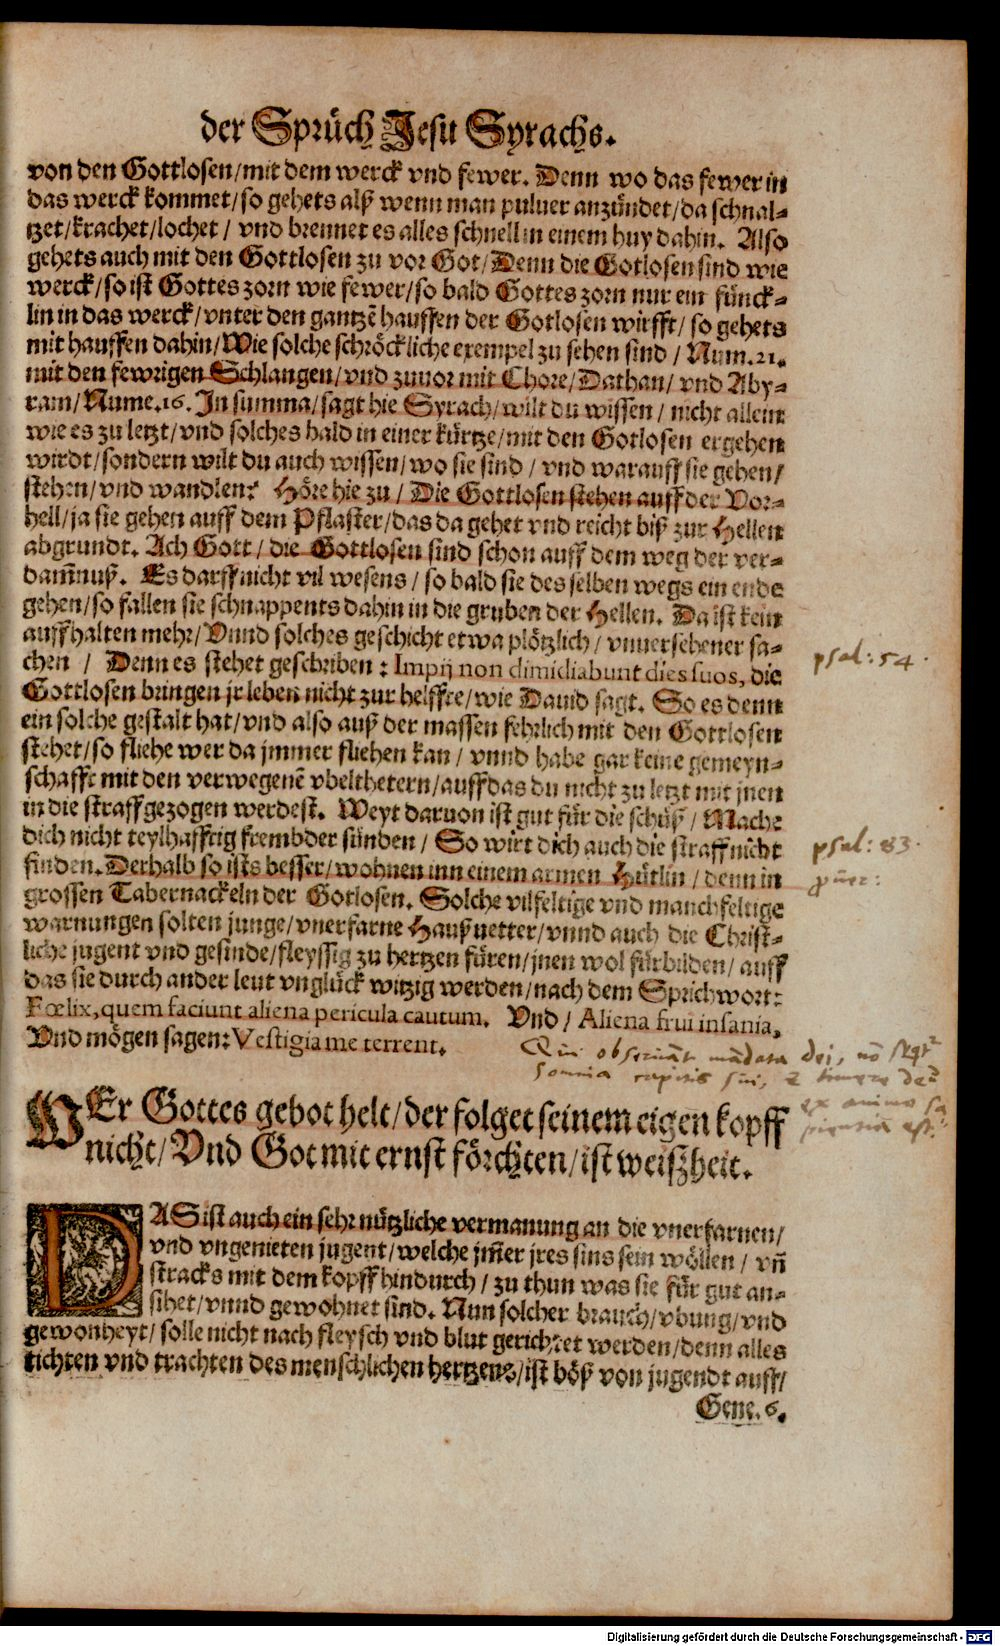 der Sprüch Jesu Syrachs.
von den Gottlosen/mit dem werck vnd fewer. Denn wo das fewer in
das werck kommet/so gehets alß wenn man puluer anzündet/da schnal-
tzet/krachet/lochet / vnd brennet es alles schnell in einem huy dahin. Also
gehets auch mit den Gottlosen zu vor Got/Denn die Gotlosen sind wie
werck/so ist Gottes zorn wie fewer/so bald Gottes zorn nur ein fünck-
lin in das werck/vnter den gantzē hauffen der Gotlosen wirfft/ so gehets
mit hauffen dahin/Wie solche schröckliche exempel zu sehen sind / Num.21.
mit den fewrigen Schlangen/vnd zuuor mit Chore/Dathan/ vnd Aby-
ram/Nume.16. In summa/sagt hie Syrach/wilt du wissen / nicht allein
wie es zu letzt/vnd solches bald in einer kürtze/mit den Gotlosen ergehen
wirdt/sondern wilt du auch wissen/wo sie sind / vnd warauff sie gehen/
stehen/vnd wandlen? Höre hie zu / Die Gottlosen stehen auff der Vor-
hell/ja sie gehen auff dem Pflaster/das da gehet vnd reicht biß zur Hellen
abgrundt. Ach Gott/ die Gottlosen sind schon auff dem weg der ver-
dam̄nuß. Es darff nicht vil wesens / so bald sie des selben wegs ein ende
gehen/so fallen sie schnappents dahin in die gruben der Hellen. Da ist kein
auffhalten mehr/Vnnd solches geschicht etwa plötzlich / vnuersehener sa-
chen / Denn es stehet geschriben : Impij non dimidiabunt dies suos, die
Gottlosen bringen jr leben nicht zur helffte/wie Dauid sagt. So es denn
ein solche gestalt hat/vnd also auß der massen fehrlich mit den Gottlosen
stehet/so fliehe wer da jmmer fliehen kan / vnnd habe gar keine gemeyn-
schafft mit den verwegenē vbelthetern/auff das du nicht zu letzt mit jnen
in die straff gezogen werdest. Weyt daruon ist gut für die schüß / Mache
dich nicht teylhafftig frembder sünden / So wirt dich auch die straff nicht
finden. Derhalb so ists besser/wohnen inn einem armen Hütlin / denn in
grossen Tabernackeln der Gotlosen. Solche vilfeltige vnd manchfeltige
warnungen solten junge/vnerfarne Haußuetter/vnnd auch die Christ-
liche jugent vnd gesinde/fleyssig zu hertzen füren/jnen wol fürbilden/ auff
das sie durch ander leut vnglück witzig werden/nach dem Sprichwort:
Fœlix,quem faciunt aliena pericula cautum. Vnd / Aliena frui insania,
Vnd mögen sagen: Vestigia me terrent.
psal: 54.
psal: 83.
Qui obseruāt mādata dei, nō
somnia capitis sui, & timere
ex animo sa
pientia est.
WEr Gottes gebot helt/der folget seinem eigen kopff
nicht/Vnd Got mit ernst förchten/ist weißheit.
DAS ist auch ein sehr nützliche vermanung an die vnerfarnen/
vnd vngenieten jugent/welche jm̄er jres sins sein wöllen / vn̄
stracks mit dem kopff hindurch / zu thun was sie für gut an-
sihet/vnnd gewohnet sind. Nun solcher brauch/vbung/vnd
gewonheyt/ solle nicht nach fleysch vnd blut gerichtet werden/denn alles
tichten vnd trachten des menschlichen hertzens/ist böß von jugendt auff/
Gene.6.
Digitalisierung gefördert durch die Deutsche Forschungsgemeinschaft - DFG